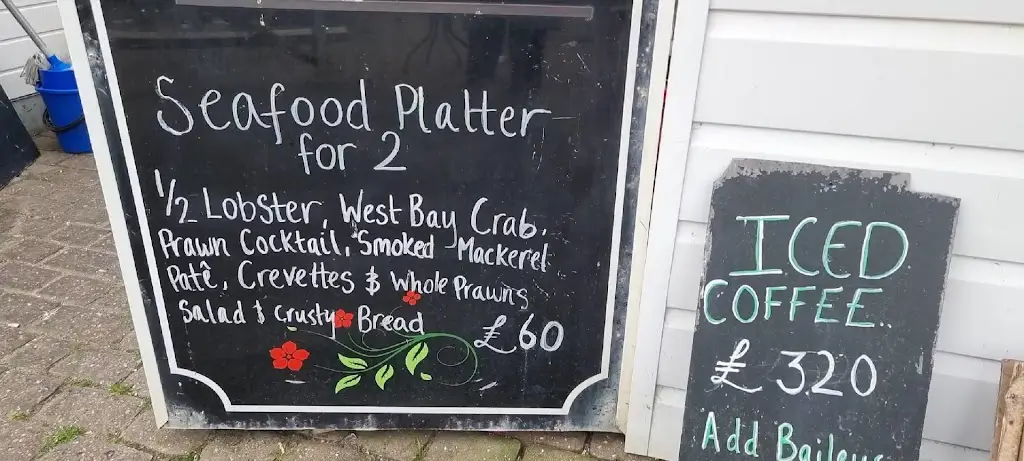 Seafood Platter
for 2
1/2 Lobster, West Bay Crab.
Prawn Cocktail, Smoked Mackerel
Patê, Crevettes & Whole Prawns
Salad & Crusty Bread
£60
ICED
COFFEE..
£ 3.20
Add Baileys